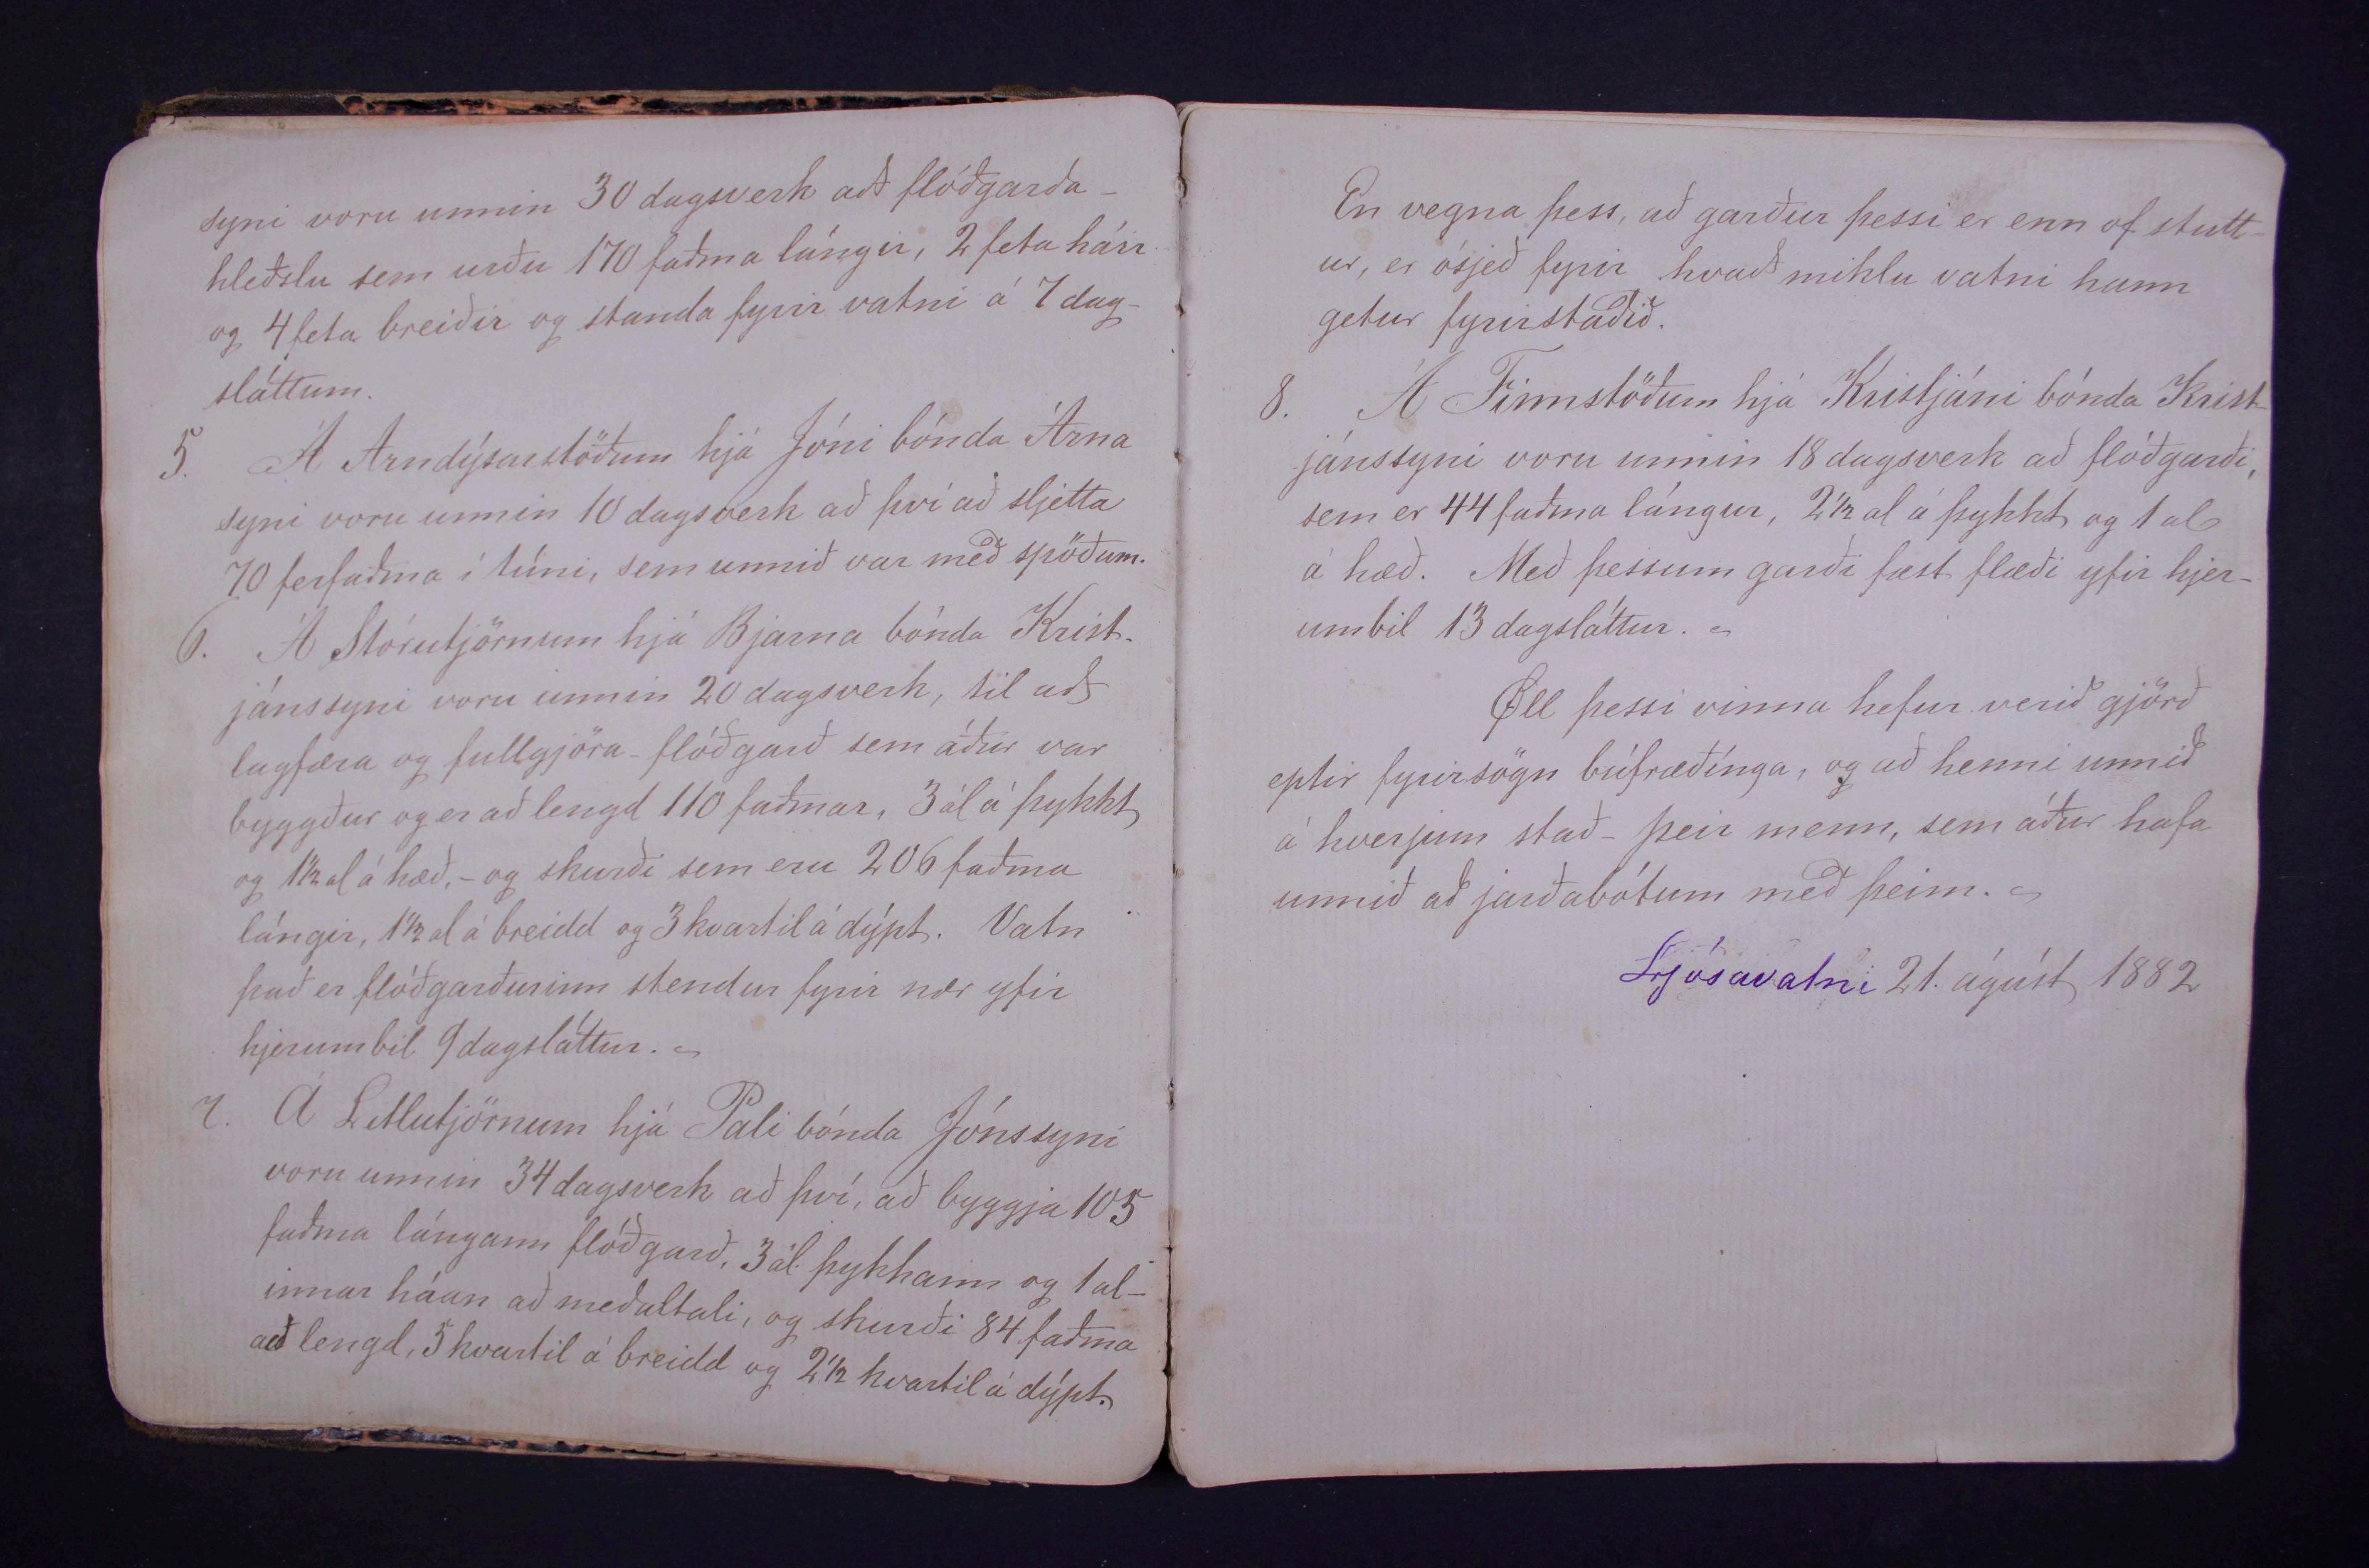 syni voru unnin 30 dagsverk að flóðgarða-
hleðslu sem urðu 170 faðma lángir, 2 feta háir
og 4 feta breiðir og standa fyrir vatni á 7 dag-
sláttum.
5. Á Arndýsarstöðum hjá Jóni bónda Árna
syni voru unnin 10 dagsverk að því að sljetta
70 ferfaðma í túni, sem unnið var með spöðum.
6. Á Stórutjörnum hjá Bjarna bónda Krist-
jánssyni voru unnin 20 dagsverk, til að
lagfæra og fullgjöra flóðgarð sem áður var
byggður og er að lengd 110 faðmar, 3 ál á þykkt
og 1½ al á hæð, - og skurði sem eru 206 faðma
lángir, 1½ al á breidd og 3 kvartil á dýpt. Vatn
það er flóðgarðurinn stendur fyrir nær yfir
hjerumbil 9 dagsláttur. -
7. Á Litlutjörnum hjá Páli bónda Jónssyni
voru unnin 34 dagsverk að því, að byggja 105
faðma lángann flóðgarð, 3 ál. þykkann og 1 al-
innar háan að meðaltali, og skurði 84 faðma
að lengd, 5 kvartil á breidd og 2½ kvartil á dýpt.
En vegna þess, að garður þessi er enn of stutt-
ur, er ósjeð fyrir hvað miklu vatni hann
getur fyrirstaðið.
8. Á Finnstöðum hjá Kristjáni bónda Krist-
jánssyni voru unnin 18 dagsverk að flóðgarði,
sem er 44 faðma lángur, 2½ al á þykkt og 1 al
á hæð. Með þessum garði fæst flæði yfir hjer-
umbil 13 dagsláttur. -
Øll þessi vinna hefur verið gjörð
eptir fyrirsögn búfræðínga, og að henni unnið
á hverjum stað - þeir menn, sem áður hafa
unnið að jarðabótum með þeim. -
Ljósavatni 21. ágúst 1882